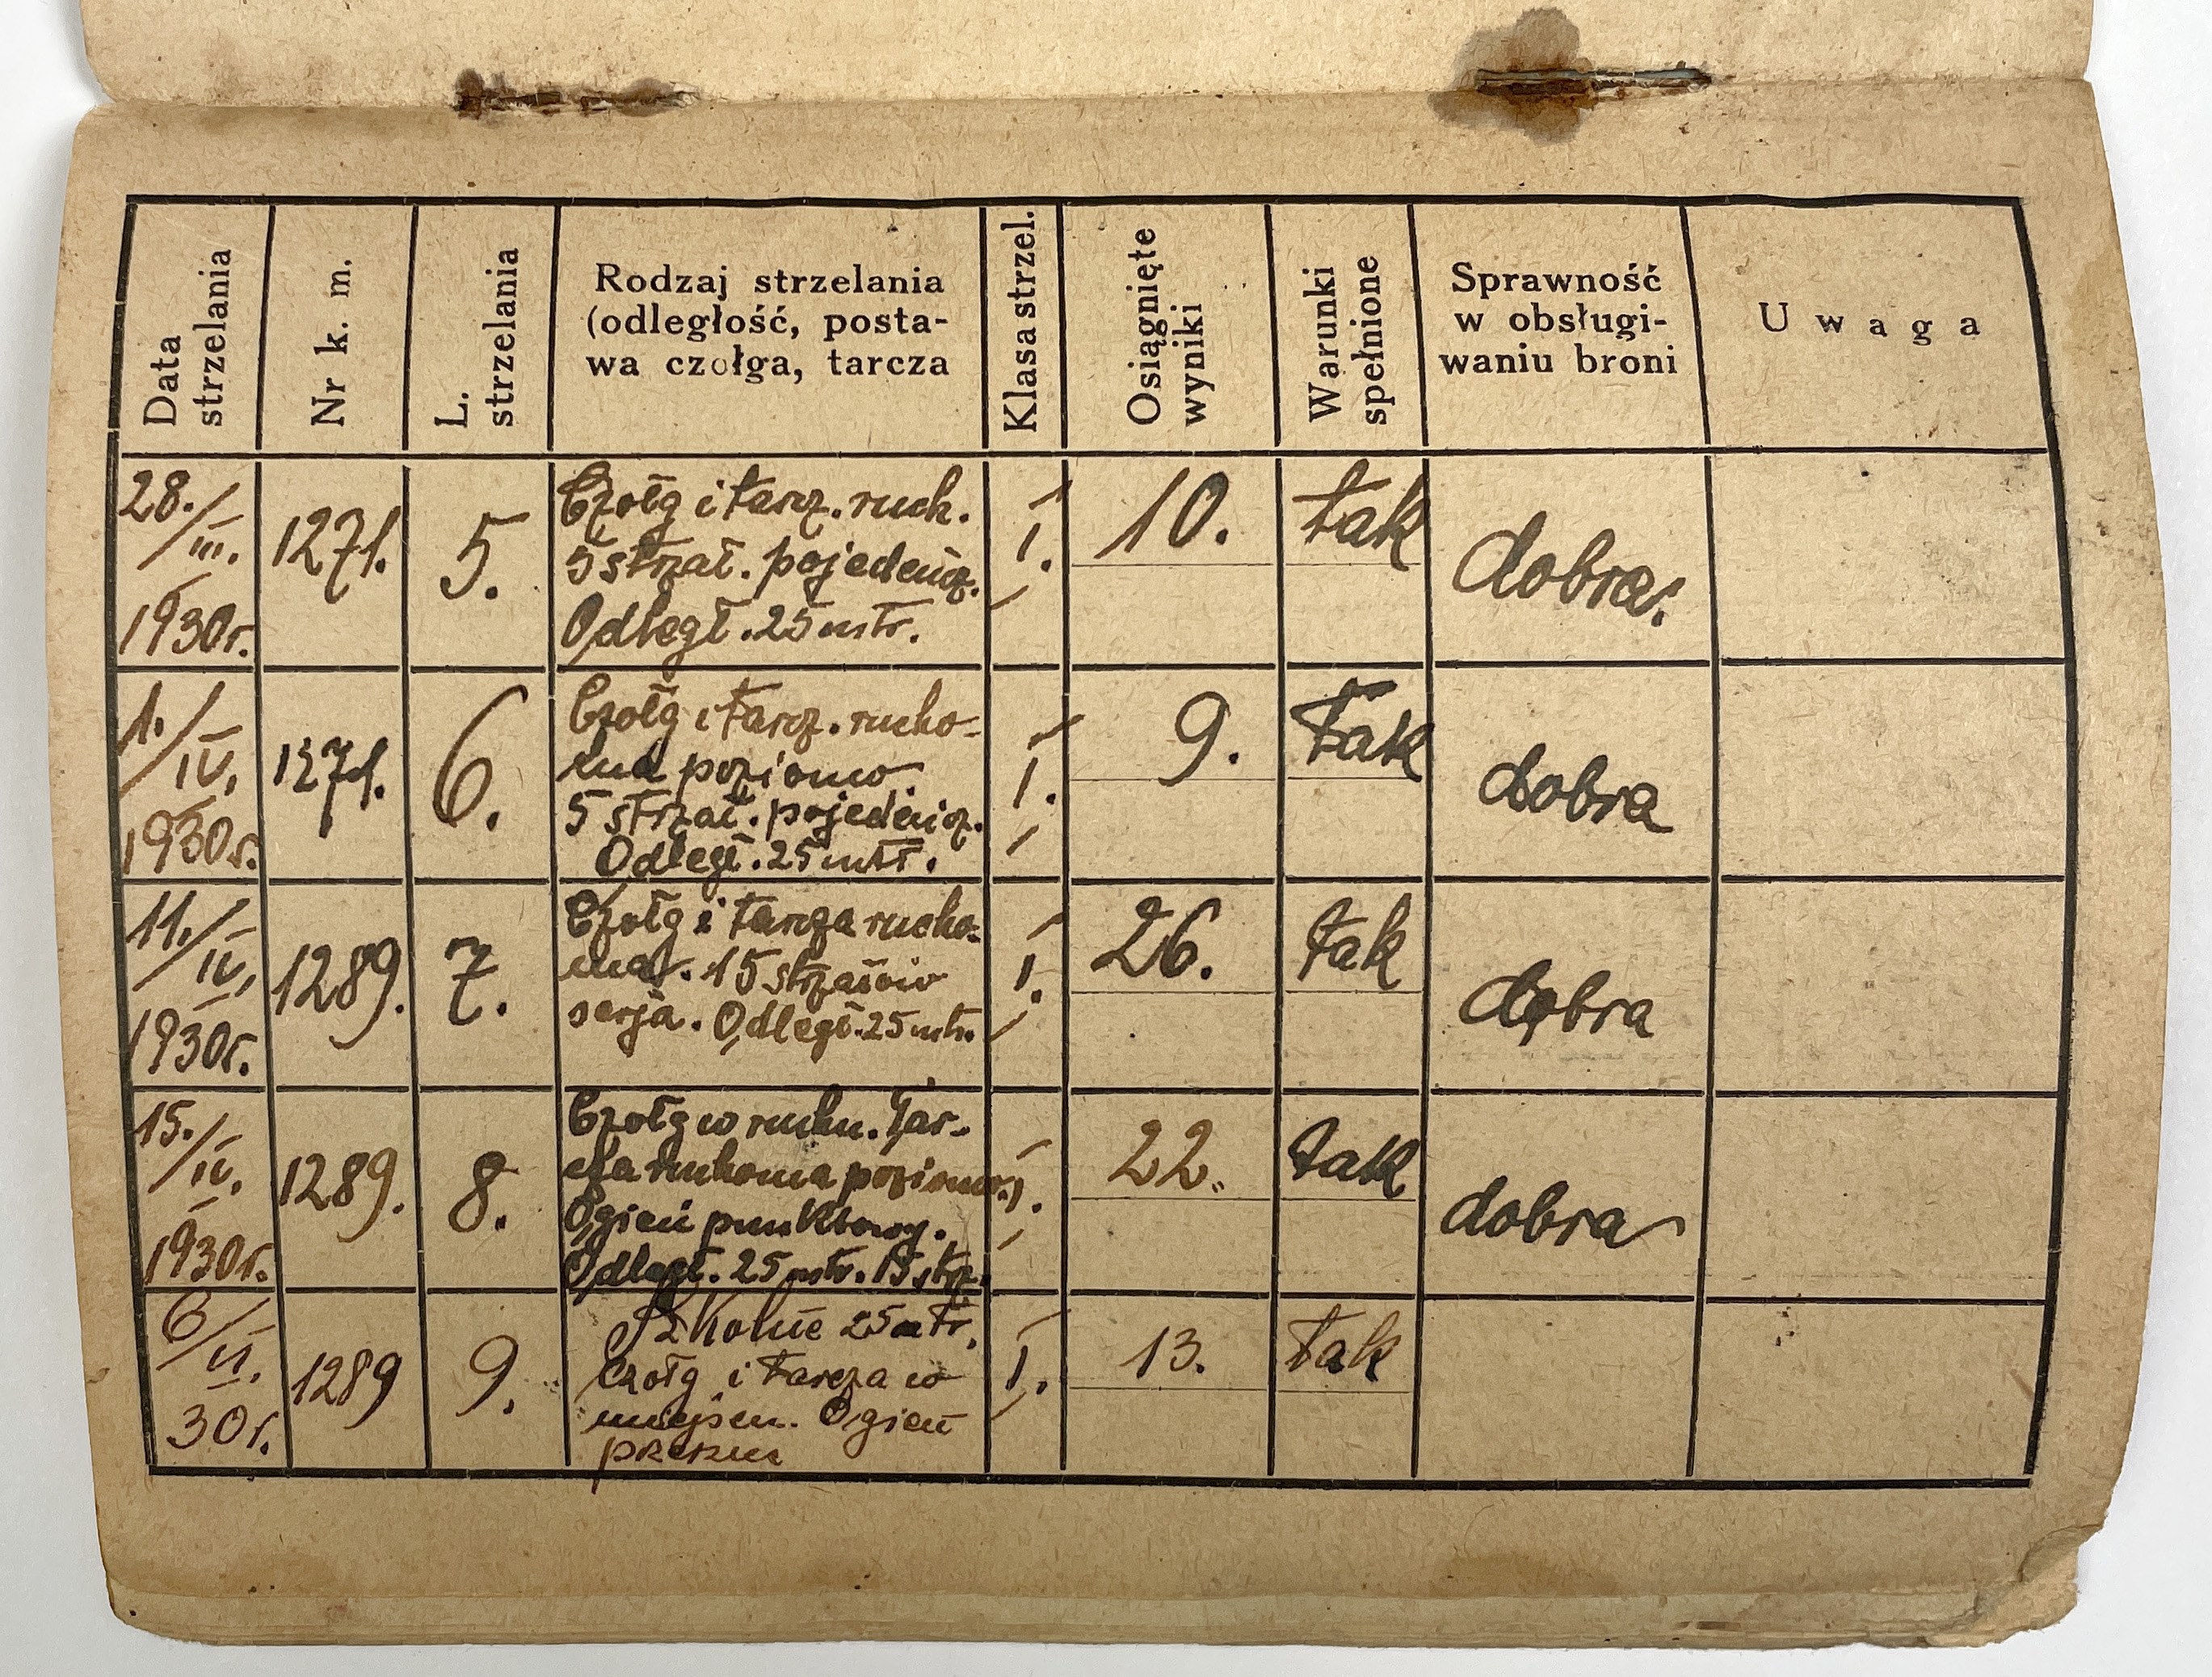 Data
strzelania
Nr k. m.
L.
strzelania
Rodzaj strzelania
(odległość, posta-
wa czołga, tarcza
Klasa strzel.
Osiągnięte
wyniki
Warunki
spełnione
Sprawność
w obsługi-
waniu broni
Uwaga
28./III.
1930r.
1271.
5.
Czołg i tarcz. ruch.
5 strzał. pojedeńcz.
Odległ. 25 mtr.
I.
10.
tak
dobra.
1./IV.
1930r.
1271.
6.
Czołg i tarcz. rucho-
ma poziomo.
5 strzał. pojedeńcz.
Odległ. 25 mtr.
I.
9.
Tak
dobra
11./IV.
1930r.
1289.
7.
Czołg i tarcza rucho-
ma. 15 strzałów
serja. Odległ. 25 mtr.
I.
26.
tak
dobra
15./IV.
1930r.
1289.
8.
Czołg w ruchu. Tar-
cza ruchoma poziomo.
Ogień punktowy.
Odległ. 25 mtr. 15 strz.
I.
22.
tak
dobra
6/VI.
30r.
1289
9.
Szkolne 25 mtr.
Czołg i tarcza w
miejscu. Ogień
I.
13.
Tak